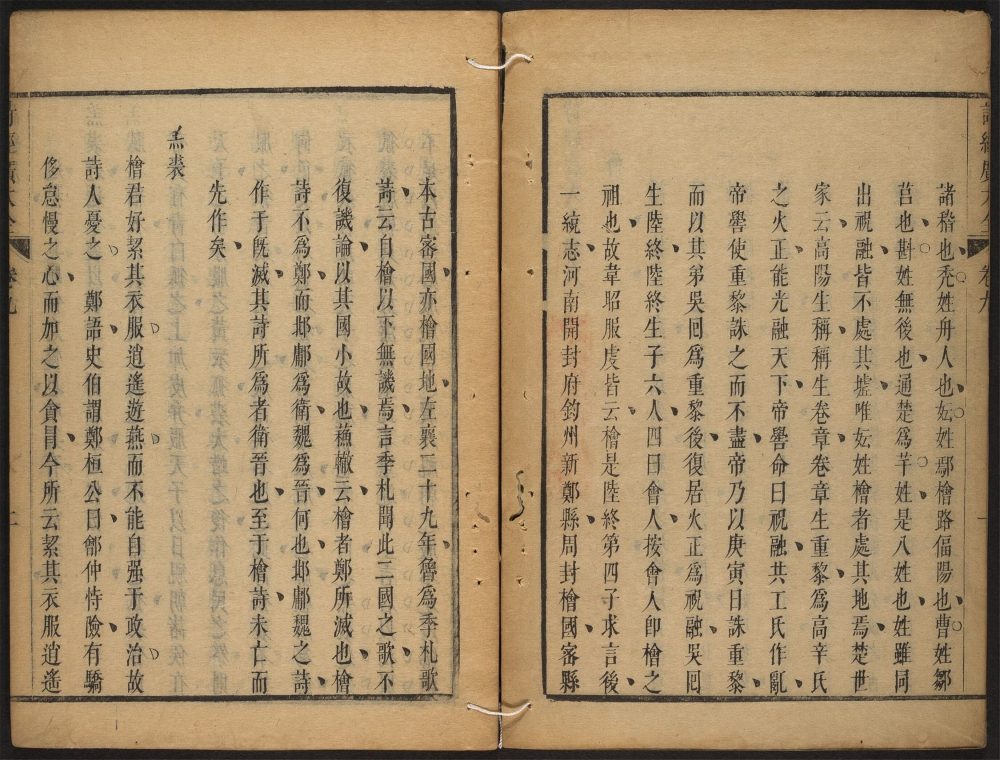 諸稽也禿姓舟人也妘姓鄢檜路偪陽也曹姓鄒
莒也斟姓無後也通楚為羋姓是八姓也姓雖同
出祝融皆不處其墟唯妘姓檜者處其地焉楚世
家云高陽生稱稱生卷章卷章生重黎為高辛氏
之火正能光融天下帝嚳命曰祝融共工氏作亂
帝嚳使重黎誅之而不盡帝乃以庚寅日誅重黎
而以其弟吳回為重黎後復居火正為祝融吳回
生陸終陸終生子六人四曰會人按會人卽檜之
祖也故韋昭服虔皆云檜是陸終第四子求言後
一統志河南開封府鈞州新鄭縣周封檜國密縣
詩經廣大全
卷九
一
本古密國亦檜國地左襄二十九年魯為季札歌
詩云自檜以下無譏焉言季札聞此二國之歌不
復譏論以其國小故也蘇轍云檜者鄭所滅也檜
詩不為鄭而邶鄘為衛魏為晉何也邶鄘魏之詩
作于旣滅其詩所為者衛晉也至于檜詩未亡而
先作矣
羔裘
檜君好絜其衣服逍遙遊燕而不能自强于政治故
詩人憂之 鄭語史伯謂鄭桓公曰鄶仲恃險有驕
侈怠慢之心而加之以貪冒今所云絜其衣服逍遙
詩經廣大全
卷九
二